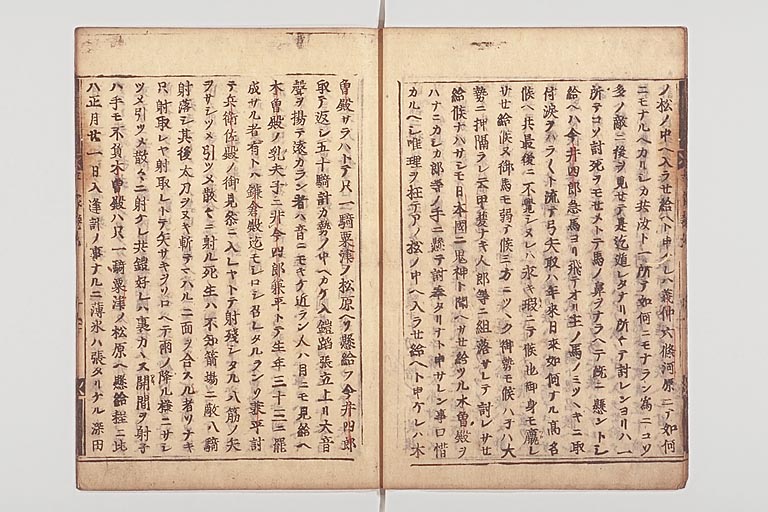 ノ松ノ中ヘ入ラせ給ヘト申ケレハ義仲六條河原ニテ如何
ニモナルヘカリシカ共汝ト一所テ如何ニモナラン為ニコソ
多ノ敵ニ後ヲ見せテ是迄遁レタナリ所々テ討レンヨリハ一
所テコソ討死ヲモせメトテ馬ノ鼻ヲナラヘテ既ニ懸ントシ
給ヘハ今井四郎急馬ヨリ飛テオリ主ノ馬ノミツヽキニ取
付涙ヲハラ〳〵ト流テ弓矢取ハ年来日来如何ナル高名
候ヘ共最後ニ不覺シヌレハ永キ瑕ニテ候也御身モ羸レ
サせ給候又御馬モ弱テ候三方ニツヽク御勢モ候ハす大
勢ニ押隔ラレ云甲斐ナキ人郎等ニ組落サレテ討レサせ
給候ナハサシモ日本國ニ鬼神ト聞ヘサせ給ツル木曽殿ヲ
ハナニカシカ郎等ノ手ニ懸テ討奉タリナト申サレン事口惜
カルヘシ唯理ヲ枉テアノ松ノ中ヘ入ラせ給ヘト申ケレハ木
曽殿サラハトテ只一騎粟津ノ松原ヘソ懸給フ今井四郎
取テ返シ五十騎計カ勢ノ中ヘカケ入鎧踏張立上リ大音
聲ヲ揚テ遠カラン者ハ音ニモキケ近ラン人ハ目ニモ見給ヘ
木曽殿ノ乳夫子ニ今井四郎兼平トテ生年三十三ニ罷
成サル者有トハ鎌倉殿迄モシロシ召レタルランソ兼平討
テ兵衛佐殿ノ御見参ニ入レヤトテ射残シタル八筋ノ矢
ヲサシツメ引ツメ散々ニ射ル死生ハ不知箭場ニ敵八騎
射落シ其後太刀ヲヌキ斬テマハルニ面ヲ合スル者ソナキ
只射取レヤ射取レトテ矢サキヲソロヘテ雨ノ降ル様ニサシ
ツメ引ツメ散々ニ射ケレ共鎧好レハ裏カヽス開間ヲ射子
ハ手モ不負木曽殿ハ只一騎粟津ノ松原ヘ懸給程ニ此
ハ正月廿一日入逢計ノ事ナルニ薄氷ハ張タリケル深田